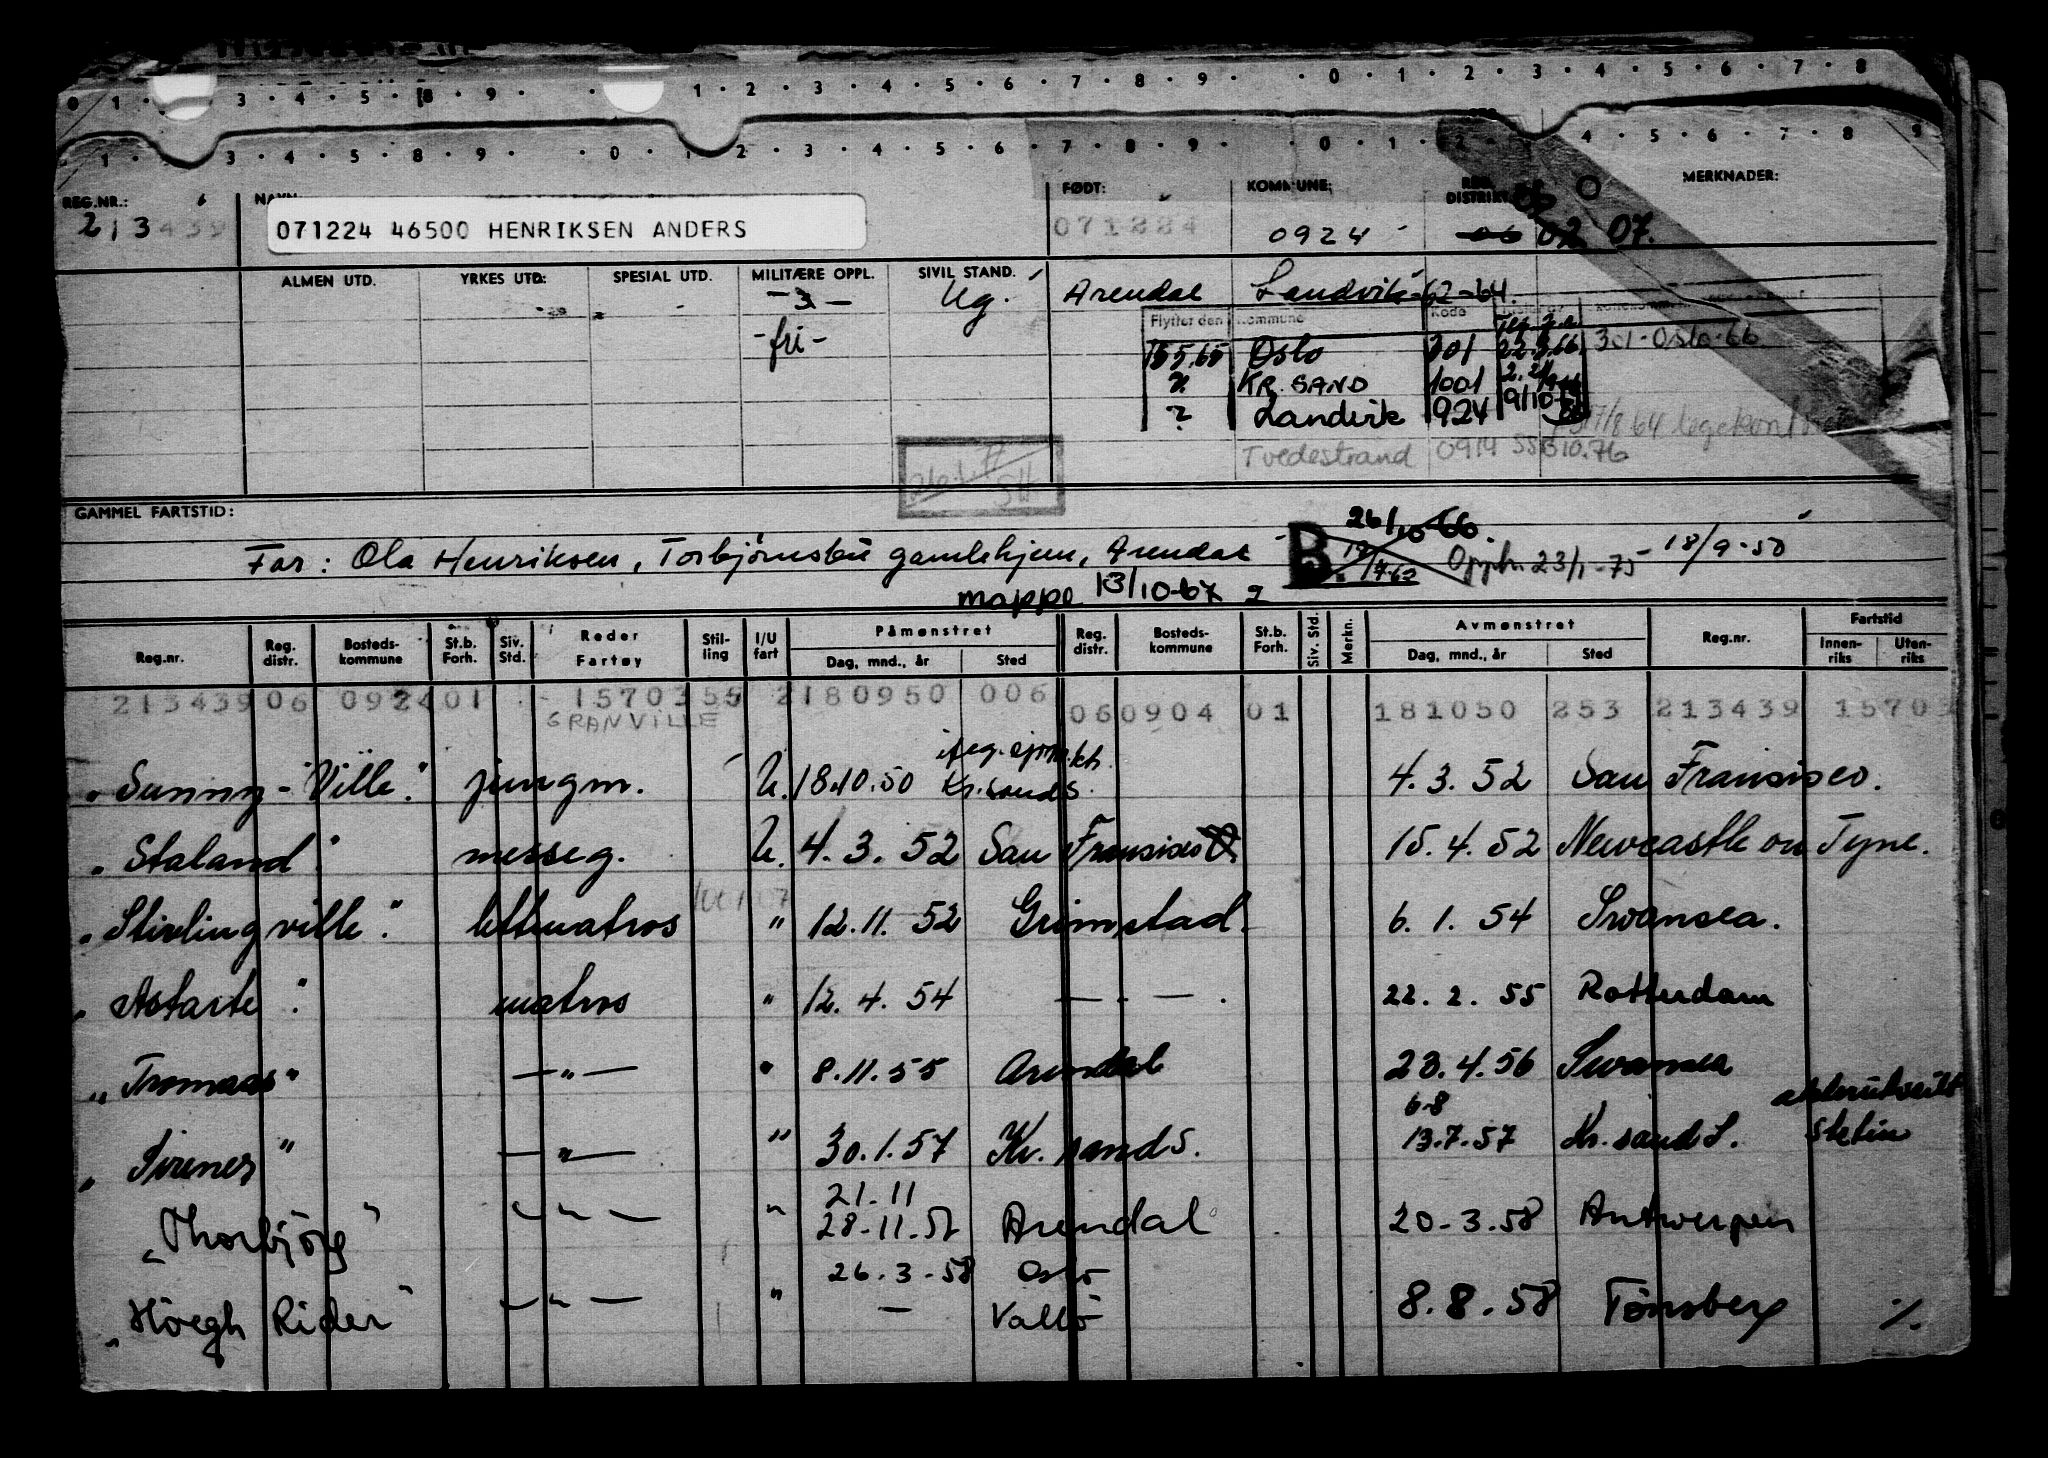 0 1 · 3 · 4 · 5 · 8 · 9 · · 1 · 2 · 3 · 4 · 5 · 6 · 7 · 8 · 9 · · 0 · 1 · 2 · 3 · 4 · 5 · 6 · 7 · 8
1 · 3 · 4 · 5 · 8 · 9 · · 0 · 1 2 · 3 · 4 · 5 · 6 · 7 · 8 · 9 · · 0 · 1 · 2 · 4 · 5 · 6 · 7 · 8 9
REG.NR.: NAVN FØDT: KOMMUNE: REG. DISTRIKT MERKNADER:
213439 071224 46500 HENRIKSEN ANDERS 071224 0924 06 02 07.
ALMEN UTD. YRKES UTD: SPESIAL UTD. MILITÆRE OPPL. SIVIL STAND.
- 3 - Ug. Arendal Landvik 62-64.
Flyttet den Kommune Kode
- fri - 15.5.65 Oslo 301 22.3.66. 301-Oslo-66
? KR. SAND 1001
? Landvik 924 9/10-
17/8 64 legekontr
Tvedestrand 0914 SSB 10.76
GAMMEL FARTSTID:
26/10-66.
Far: Ola Henriksen, Torbjørnsbu gamlehjem, Arendal B Opph. 23/1-75 18/9-50
mappe 13/10-67
Reg.nr. Reg. distr. Bosteds-kommune St.b. Forh. Siv. Std. Reder Fartøy Stil-ling I/U fart Påmønstret Dag, mnd., år Sted Reg. distr. Bosteds-kommune St.b. Forh. Siv. Std. Merkn. Avmønstret Dag, mnd., år Sted Reg.nr. Fartstid Innen-riks Uten-riks
213439 06 0924 01 1570355 2180950 006
GRANVILLE 060904 01 181050 253 213439 15703
"Sunny-Ville". jungm. U. 18.10.50 Kr.sand S. 4.3.52 San Fransisco.
"Staland". messeg. U. 4.3.52 San Fransisco 15.4.52 Newcastle on Tyne.
"Stirlingville". lettmatros " 12.11.52 Grimstad. 6.1.54 Swansea.
"Astarte". matros " 12.4.54 — " — . 22.2.55 Rotterdam
"Tromaas" — " — " 8.11.55 Arendal 23.4.56 Swansea
6-8
"Sirenes" — " — " 30.1.57 Kr. sand S. 13.7.57 Kr. sand S. Stetin
21-11
"Thorbjörg" — " — " 28-11.57 Arendal 20-3.58 Antwerpen
26.3-58 Oslo
"Höegh Rider" — " — " — Vallö 8.8.58 Tönsberg %